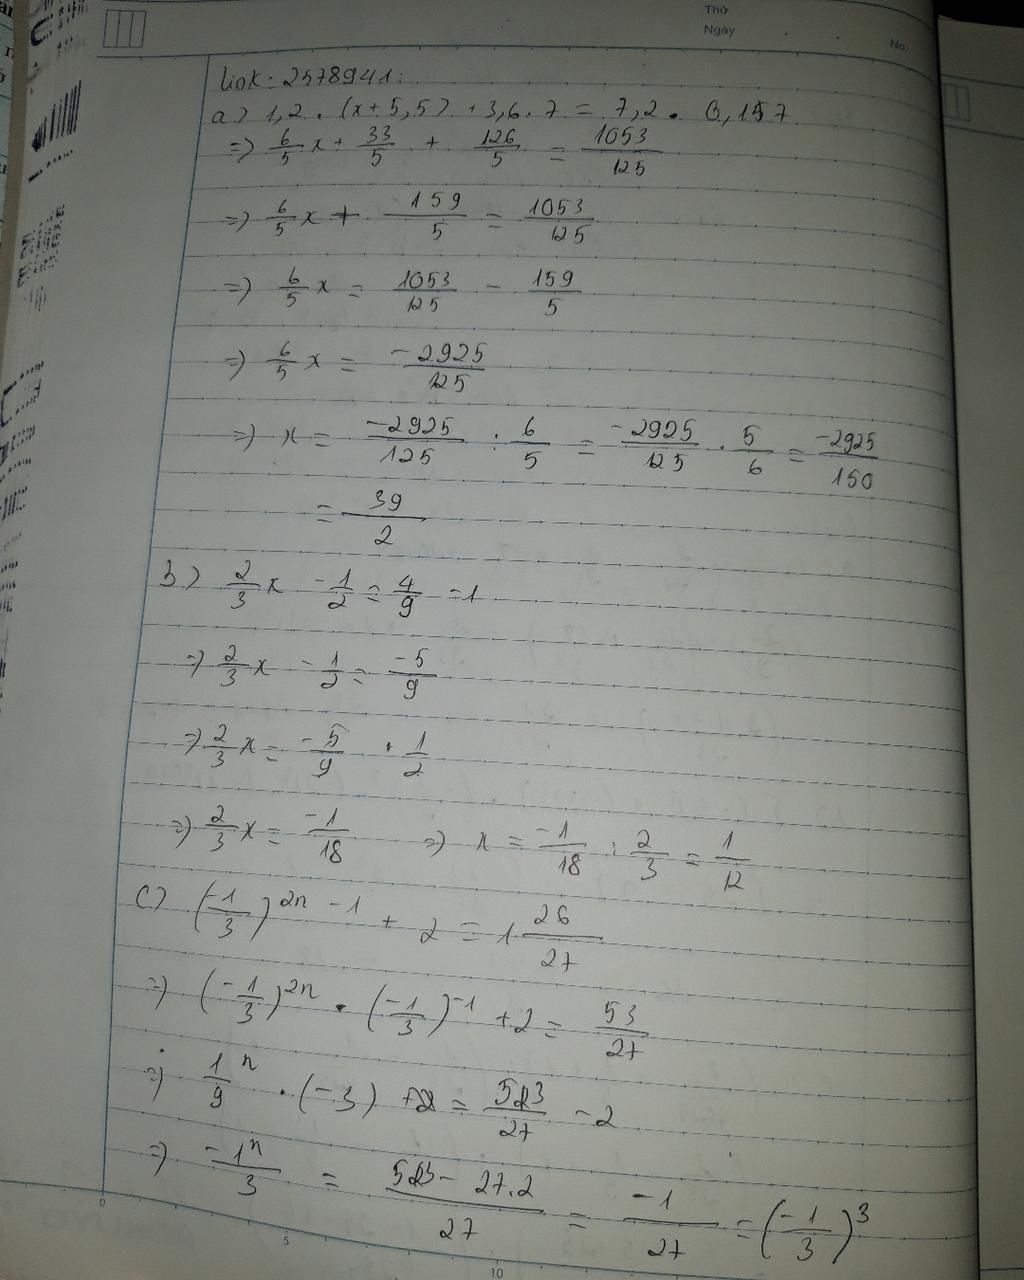 Thứ
Ngày
No.
Link: 2578941:
a) 1,2 . (x + 5,5) + 3,6 . 7 = 7,2 . 0,157
=> 6/5 x + 33/5 + 126/5 = 1053/125
=> 6/5 x + 159/5 = 1053/125
=> 6/5 x = 1053/125 - 159/5
=> 6/5 x = -2925/125
=> x = -2925/125 : 6/5 = -2925/125 . 5/6 = -2925/150
= 39/2
b) 2/3 x - 1/2 = 4/9 - 1
=> 2/3 x - 1/2 = -5/9
=> 2/3 x = -5/9 . 1/2
=> 2/3 x = -1/18 => x = -1/18 : 2/3 = 1/12
c) (-1/3)^2n - 1 + 2 = 1 26/27
=> (-1/3)^2n . (-1/3)^-1 + 2 = 53/27
=> 1/9^n . (-3) = 53/27 - 2
=> -1^n/3 = 53 - 27.2/27 = -1/27 = (-1/3)^3
0
5
10